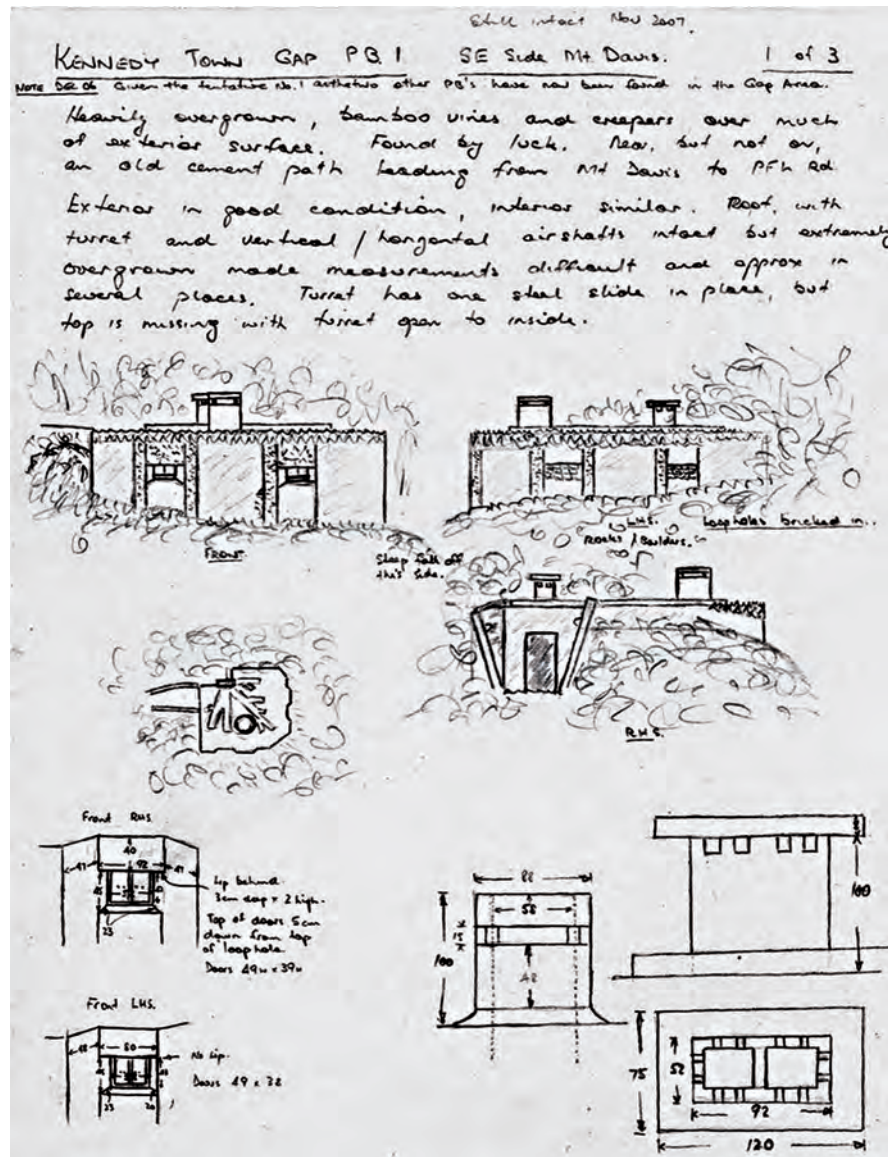 Still intact Nov 2007.
KENNEDY TOWN GAP PB.1 SE Side Mt. Davis. 1 of 3
NOTE DEC 06 Given the tentative No. 1 as two other PB's have now been found in the Gap Area.
Heavily overgrown, bamboo vines and creepers over much
of exterior surface. Found by luck. Near, but not on,
an old cement path leading from Mt Davis to PFL Rd.
Exterior in good condition, interior similar. Roof, with
turret and vertical / horizontal airshafts intact but extremely
overgrown made measurements difficult and approx in
several places. Turret has one steel slide in place, but
top is missing with turret open to inside.
FRONT
Steep fall off
this side.
L.H.S.
Rocks / Boulders.
Loopholes bricked in..
R.H.S.
Front RHS.
40
92
41
41
23
Lip behind.
3cm deep x 2 high.
Top of doors 5cm
down from top
of loophole
Doors 49H x 39W
Front LHS.
80
23
20
No lip.
Doors 49 x 32
88
58
15
100
48
100
75
52
92
120